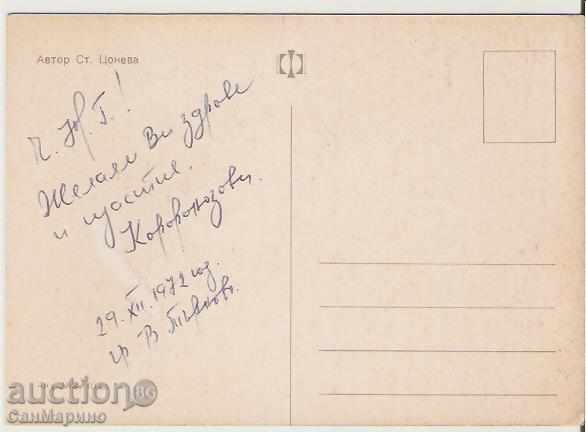 Автор Ст. Цонева
Ч. Н. Г. !
Желаем Ви здраве
и щастие.
29. XII. 1972 год.
гр В Търново.
auction BG
СанМарино